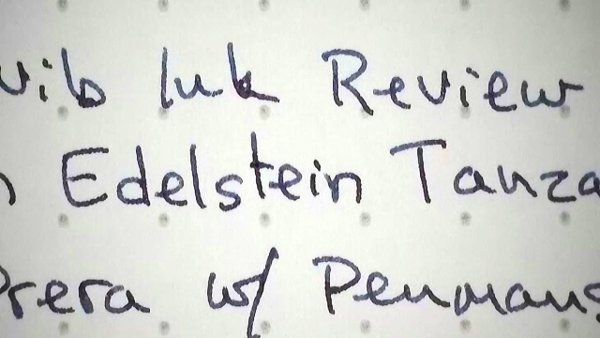 nib Ink Review
Edelstein Tanza
Prera w/ Penmans